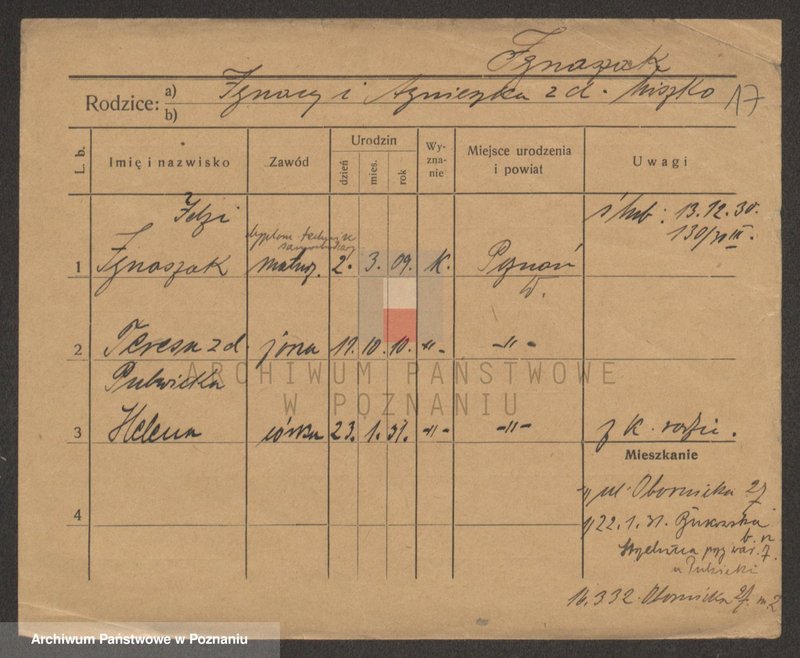 Ignaszak
Rodzice: a) b) Ignacy i Agnieszka z d. Miszko
17
L. b.
Imię i nazwisko
Zawód
Urodzin
dzień
mies.
rok
Wy-
zna-
nie
Miejsce urodzenia
i powiat
Uwagi
ślub: 13.12.30.
130/30 III.
Felzi
dyplom techn.
samochodowy
1 Ignaszak 2. 3. 09. K. Poznań
W.
2 Teresa z d. żona 17. 10. 10. -"- -"-
Pulwicka
3 Helena córka 23. 1. 31. -"- -"- z K. rodzic.
Mieszkanie
-"- ul. Obornicka 27
4
22.1.31. Bukowska
b. n
Strzelnica przy war. 7.
u Pulwicki
16.3.32. Obornicka 27. m. 2
ARCHIWUM PAŃSTWOWE
W POZNANIU
Archiwum Państwowe w Poznaniu